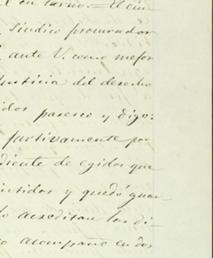 en turno = El ciu
Sindico procurador
ante V. como mejor
Justicia del derecho
idos parezco y digo:
partivamente por
diente de egidos que
intidos y quedó guar
to acreditan los di
o acompaño en dos